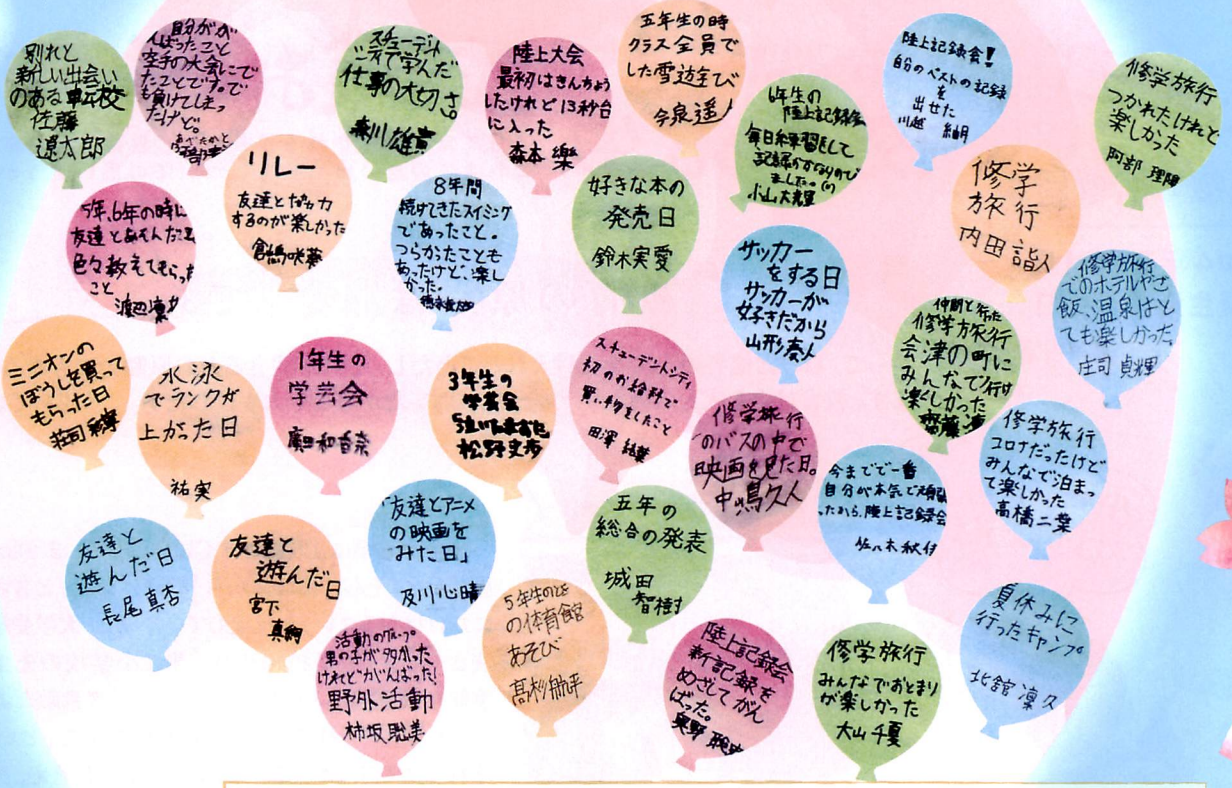 別れと
新しい出会い
のある転校
佐藤
遼太郎
自分がが
んばったこと
空手の大会にで
たことです。でも
負けてしまっ
たけど。
スチューデント
シティで学んだ
仕事の大切さ。
陸上大会
最初はきんちょう
したけれど13秒台
に入った
森本 樂
五年生の時
クラス全員で
した雪遊び
今泉遥人
6年生の
陸上記録会
毎日練習をして
記録がかなりので
ました。(^^)
小山大輝
陸上記録会!
自分のベストの記録
を
出せた
川越 紬月
修学旅行
つかれたけれど
楽しかった
阿部 理陽
5年、6年の時に
友達とあそんだこと
色々教えてもらった
こと
リレー
友達と協力
するのが楽しかった
8年間
続けてきたスイミング
であったこと。
つらかったことも
あったけど、楽し
かった。
好きな本の
発売日
鈴木実愛
サッカー
をする日
サッカーが
好きだから
山形奏人
修学
旅行
内田 諧人
修学旅行
でのホテルやご
飯、温泉はと
ても楽しかった。
庄司 貞輝
仲間と行った
修学旅行
会津の町に
みんなで行けて
楽しかった
ミニオンの
ぼうしを買って
もらった日
水泳
でランクが
上がった日
祐実
1年生の
学芸会
廣田和香奈
3年生の
学芸会
スチューデントシティ
初のお給料で
買い物をしたこと
田澤 結葉
修学旅行
のバスの中で
映画を見た日。
中嶋久人
今までで一番
自分が本気で頑張
ったから、陸上記録会
修学旅行
コロナだったけど
みんなで泊まっ
て楽しかった
高橋二葉
友達と
遊んだ日
長尾真杏
友達と
遊んだ日
宮下
真絢
「友達とアニメ
の映画を
みた日」
及川心晴
五年の
総合の発表
城田
智樹
活動のグループ
男の子が多かった
けれどがんばった!
野外活動
柿坂聡美
5年生のとき
の体育館
あそび
高杉航平
陸上記録会
新記録を
めざしてがん
ばった。
修学旅行
みんなでおとまり
が楽しかった
大山千夏
夏休みに
行ったキャンプ
北舘凜久